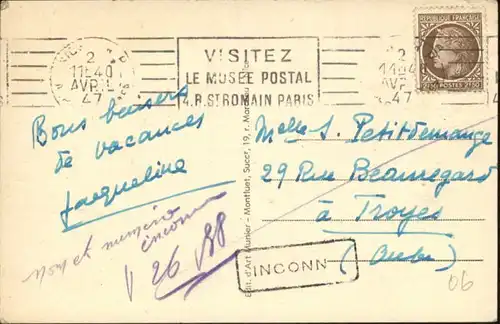 2
11H40
AVRIL
47
VISITEZ
LE MUSÉE POSTAL
4.R.ST ROMAIN PARIS
2
47
REPUBLIQUE FRANÇAISE
POSTES
Bons baisers
de vacances
Jacqueline
Nom et numéro
inconnu
Edit. d'Art Munier - Montluet, Succr, 19, r.
Melle S. Petitdemange
29 Rue Beauregard
à Troyes
(Aube)
INCONN
06